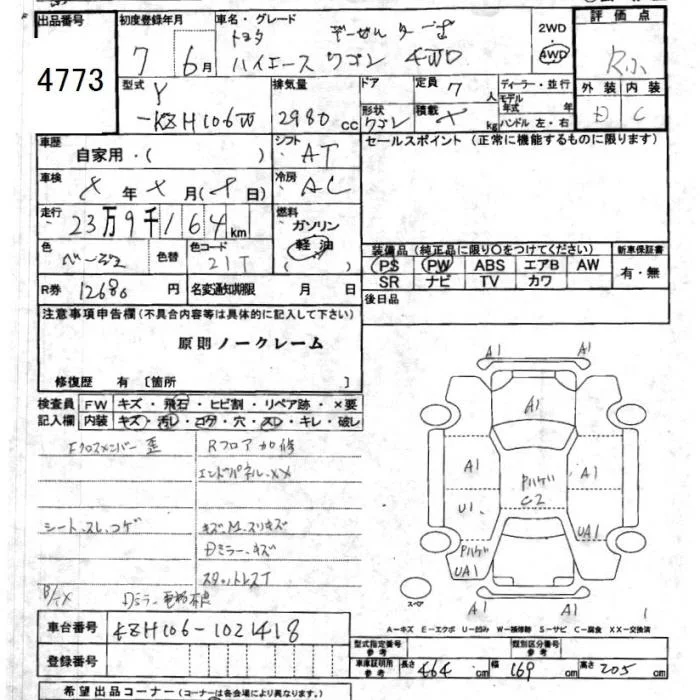 出品番号 初度登録年月 車名・グレード 2WD 評価点
4773 7 6月 トヨタ ディーゼルターボ
ハイエースワゴン 4WD 4WD R小
型式 Y 排気量 ドア 定員 7人 ディーラー・並行 外装 内装
-KZH106W 2980cc 形状 ワゴン 積載 kg モデル年式 年 ハンドル 左・右 D C
車歴 自家用・( ) シフト AT セールスポイント (正常に機能するものに限ります)
車検 年 月 ( 日) 冷房 AC
走行 23万9千164km 燃料 ガソリン
軽油
色 ベージュ 色替 色コード 21T ( ) 装備品 (純正品に限り○をつけてください) 新車保証書
PS PW ABS エアB AW 有・無
SR ナビ TV カワ
R券 12680円 名変通知期限 月 日 後日品
注意事項申告欄 (不具合内容等は具体的に記入して下さい)
原則ノークレーム
修復歴 有 〔箇所 〕
検査員 FW キズ・飛石・ヒビ割・リペア跡・×要
記入欄 内装 キズ・汚レ・コゲ・穴・スレ・キレ・破レ
Fクロスメンバー歪 Rフロア加修
エンドパネル.XX
シート.スレ.コゲ キズM.スリキズ
Dミラー.キズ
スタットレスT
Dミラー電格不良
A1 A1
A1
A1 A1
Pハゲ
C2
U1 UA1
Pハゲ
UA1
A1 A1
スペア
A-キズ E-エクボ U-凹み W-補修跡 S-サビ C-腐食 XX-交換済
車台番号 KZH106-1021418
登録番号
型式指定番号 類別区分番号
車庫証明用 長さ 464cm 幅 169cm 高さ 205cm
希望出品コーナー (コーナーは各会場により異なります。)